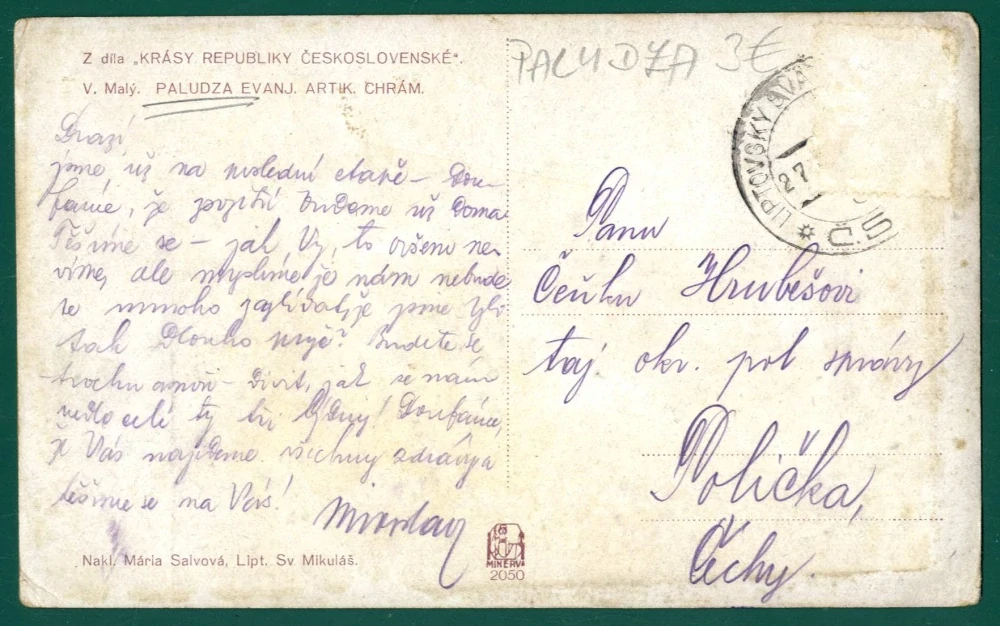 Z díla „KRÁSY REPUBLIKY ČESKOSLOVENSKÉ“.
V. Malý. PALUDZA EVANJ. ARTIK. CHRÁM.
PALUDZA 3€
LIPTOVSKÝ SVÄ
27
Č.S
Drazí
jsme už na poslední etapě – Dou-
fáme, že pozítří budeme už doma
Těšíme se – jak Vy, to ovšem ne-
víme, ale myslíme, že nám nebude
se mnoho že jsme byli
tak dlouho pryč? Budete se
trochu divit, jak se nám
vedlo celé ty tři týdny! Doufáme,
že Vás najdeme všechny zdrávy a
těšíme se na Vás!
Miroslav
Panu
Čeňku Hrubešovi
taj. okr. pol. správy
Polička,
Čechy.
Nakl. Mária Salvová, Lipt. Sv Mikuláš.
MINERVA
2050